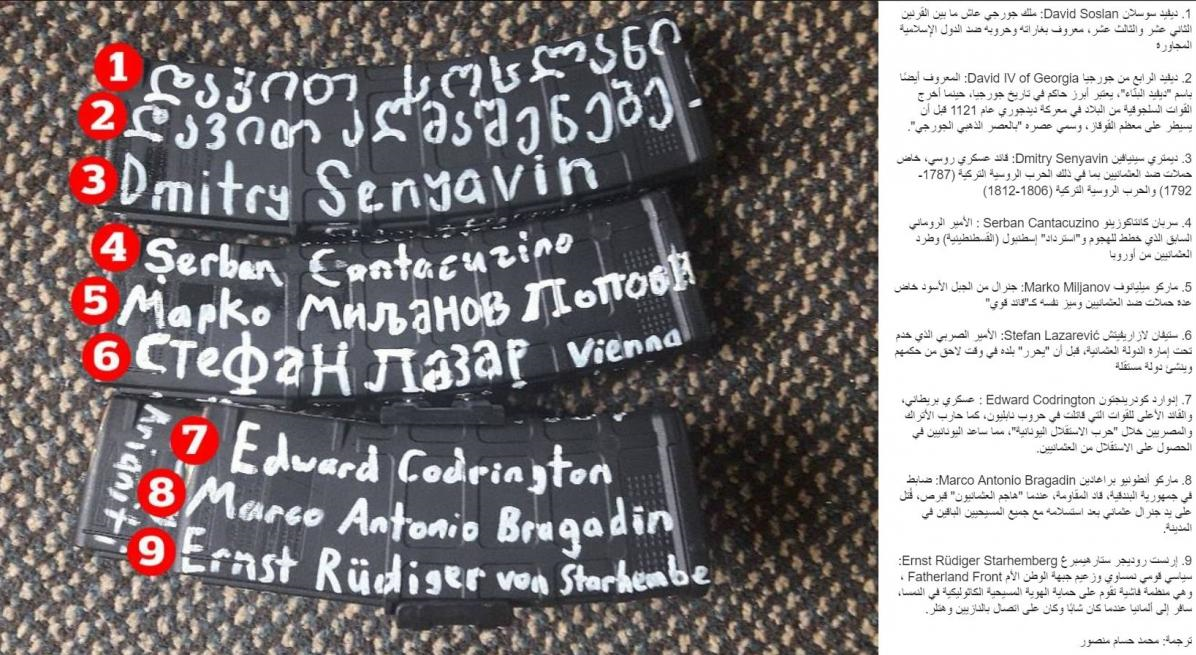 1 დავით სოსლანი
2 დავით აღმაშენებე
3 Dmitry Senyavin
4 Şerban Cantacuzino
5 Марко Миљанов Попови
6 Стефан Лазар Vienna
7 Edward Codrington
8 Marco Antonio Bragadin
9 Ernst Rüdiger von Starhembe
1. ديفيد سوسلان David Soslan: ملك جورجي عاش ما بين القرنين
الثاني عشر والثالث عشر، معروف بغاراته وحروبه ضد الدول الإسلامية
المجاورة
2. ديفيد الرابع من جورجيا David IV of Georgia: المعروف أيضًا
باسم "ديفيد البنّاء"، يعتبر أبرز حاكم في تاريخ جورجيا، حينما أخرج
القوات السلجوقية من البلاد في معركة ديدجوري عام 1121 قبل أن
يسيطر على معظم القوقاز، وسمي عصره "بالعصر الذهبي الجورجي".
3. ديمتري سينيافين Dmitry Senyavin: قائد عسكري روسي، خاض
حملات ضد العثمانيين بما في ذلك الحرب الروسية التركية (1787-
1792) والحرب الروسية التركية (1806-1812)
4. سربان كانتاكوزينو Serban Cantacuzino : الأمير الروماني
السابق الذي خطط للهجوم و"استرداد" إسطنبول (القسطنطينية) وطرد
العثمانيين من أوروبا
5. ماركو ميليانوف Marko Miljanov: جنرال من الجبل الأسود خاض
عدة حملات ضد العثمانيين وميز نفسه كـ"قائد قوي"
6. ستيفان لازاريفيتش Stefan Lazarević: الأمير الصربي الذي خدم
تحت إمارة الدولة العثمانية، قبل أن "يحرر" بلده في وقت لاحق من حكمهم
وينشئ دولة مستقلة
7. إدوارد كودرينجتون Edward Codrington : عسكري بريطاني،
والقائد الأعلى للقوات التي قاتلت في حروب نابليون، كما حارب الأتراك
والمصريين خلال "حرب الاستقلال اليونانية"، مما ساعد اليونانيين في
الحصول على الاستقلال من العثمانيين.
8. ماركو أنطونيو براغادين Marco Antonio Bragadin: ضابط
في جمهورية البندقية، قاد المقاومة، عندما "هاجم العثمانيون" قبرص، قُتل
على يد جنرال عثماني بعد استسلامه مع جميع المسيحيين الباقين في
المدينة.
9. إرنست روديجر ستارهيمبرغ Ernst Rüdiger Starhemberg:
سياسي قومي نمساوي وزعيم جبهة الوطن الأم Fatherland Front ،
وهي منظمة فاشية تقوم على حماية الهوية المسيحية الكاثوليكية في النمسا،
سافر إلى ألمانيا عندما كان شابًا وكان على اتصال بالنازيين وهتلر.
ترجمة: محمد حسام منصور